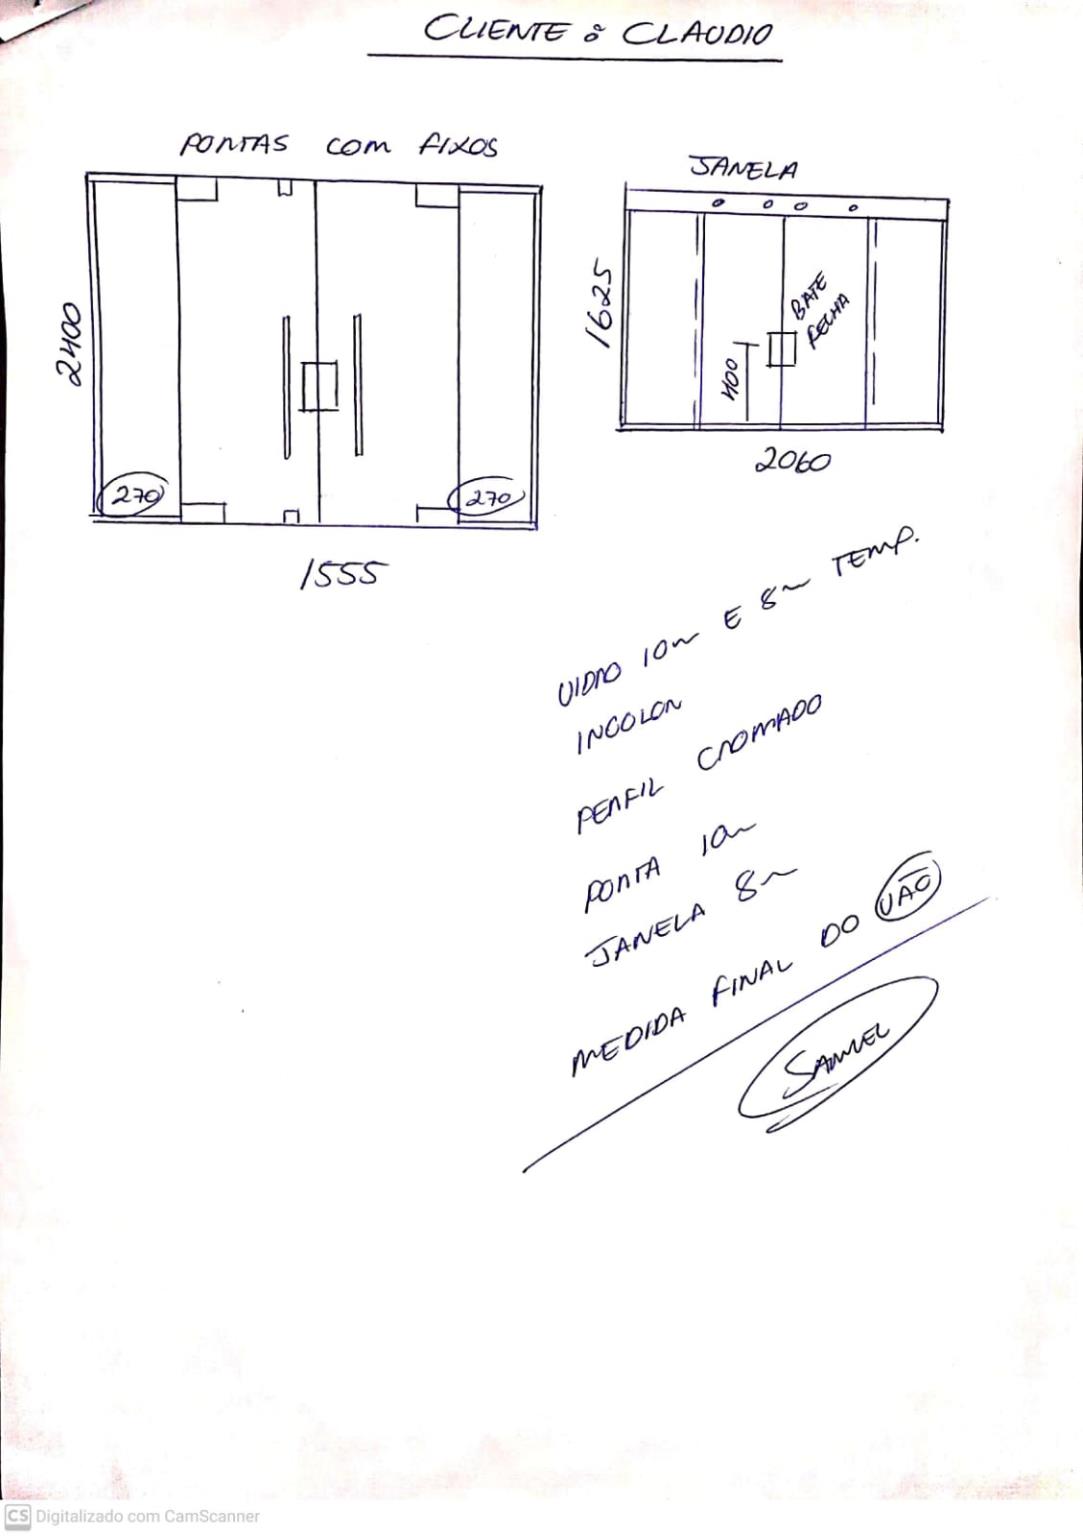 CLIENTE : CLAUDIO
PORTAS COM FIXOS
2400
270
270
1555
JANELA
1625
BATE
FECHA
400
2060
VIDRO 10m E 8m TEMP.
INCOLOR
PERFIL CROMADO
PORTA 10m
JANELA 8m
MEDIDA FINAL DO VÃO
SAMUEL
CS Digitalizado com CamScanner